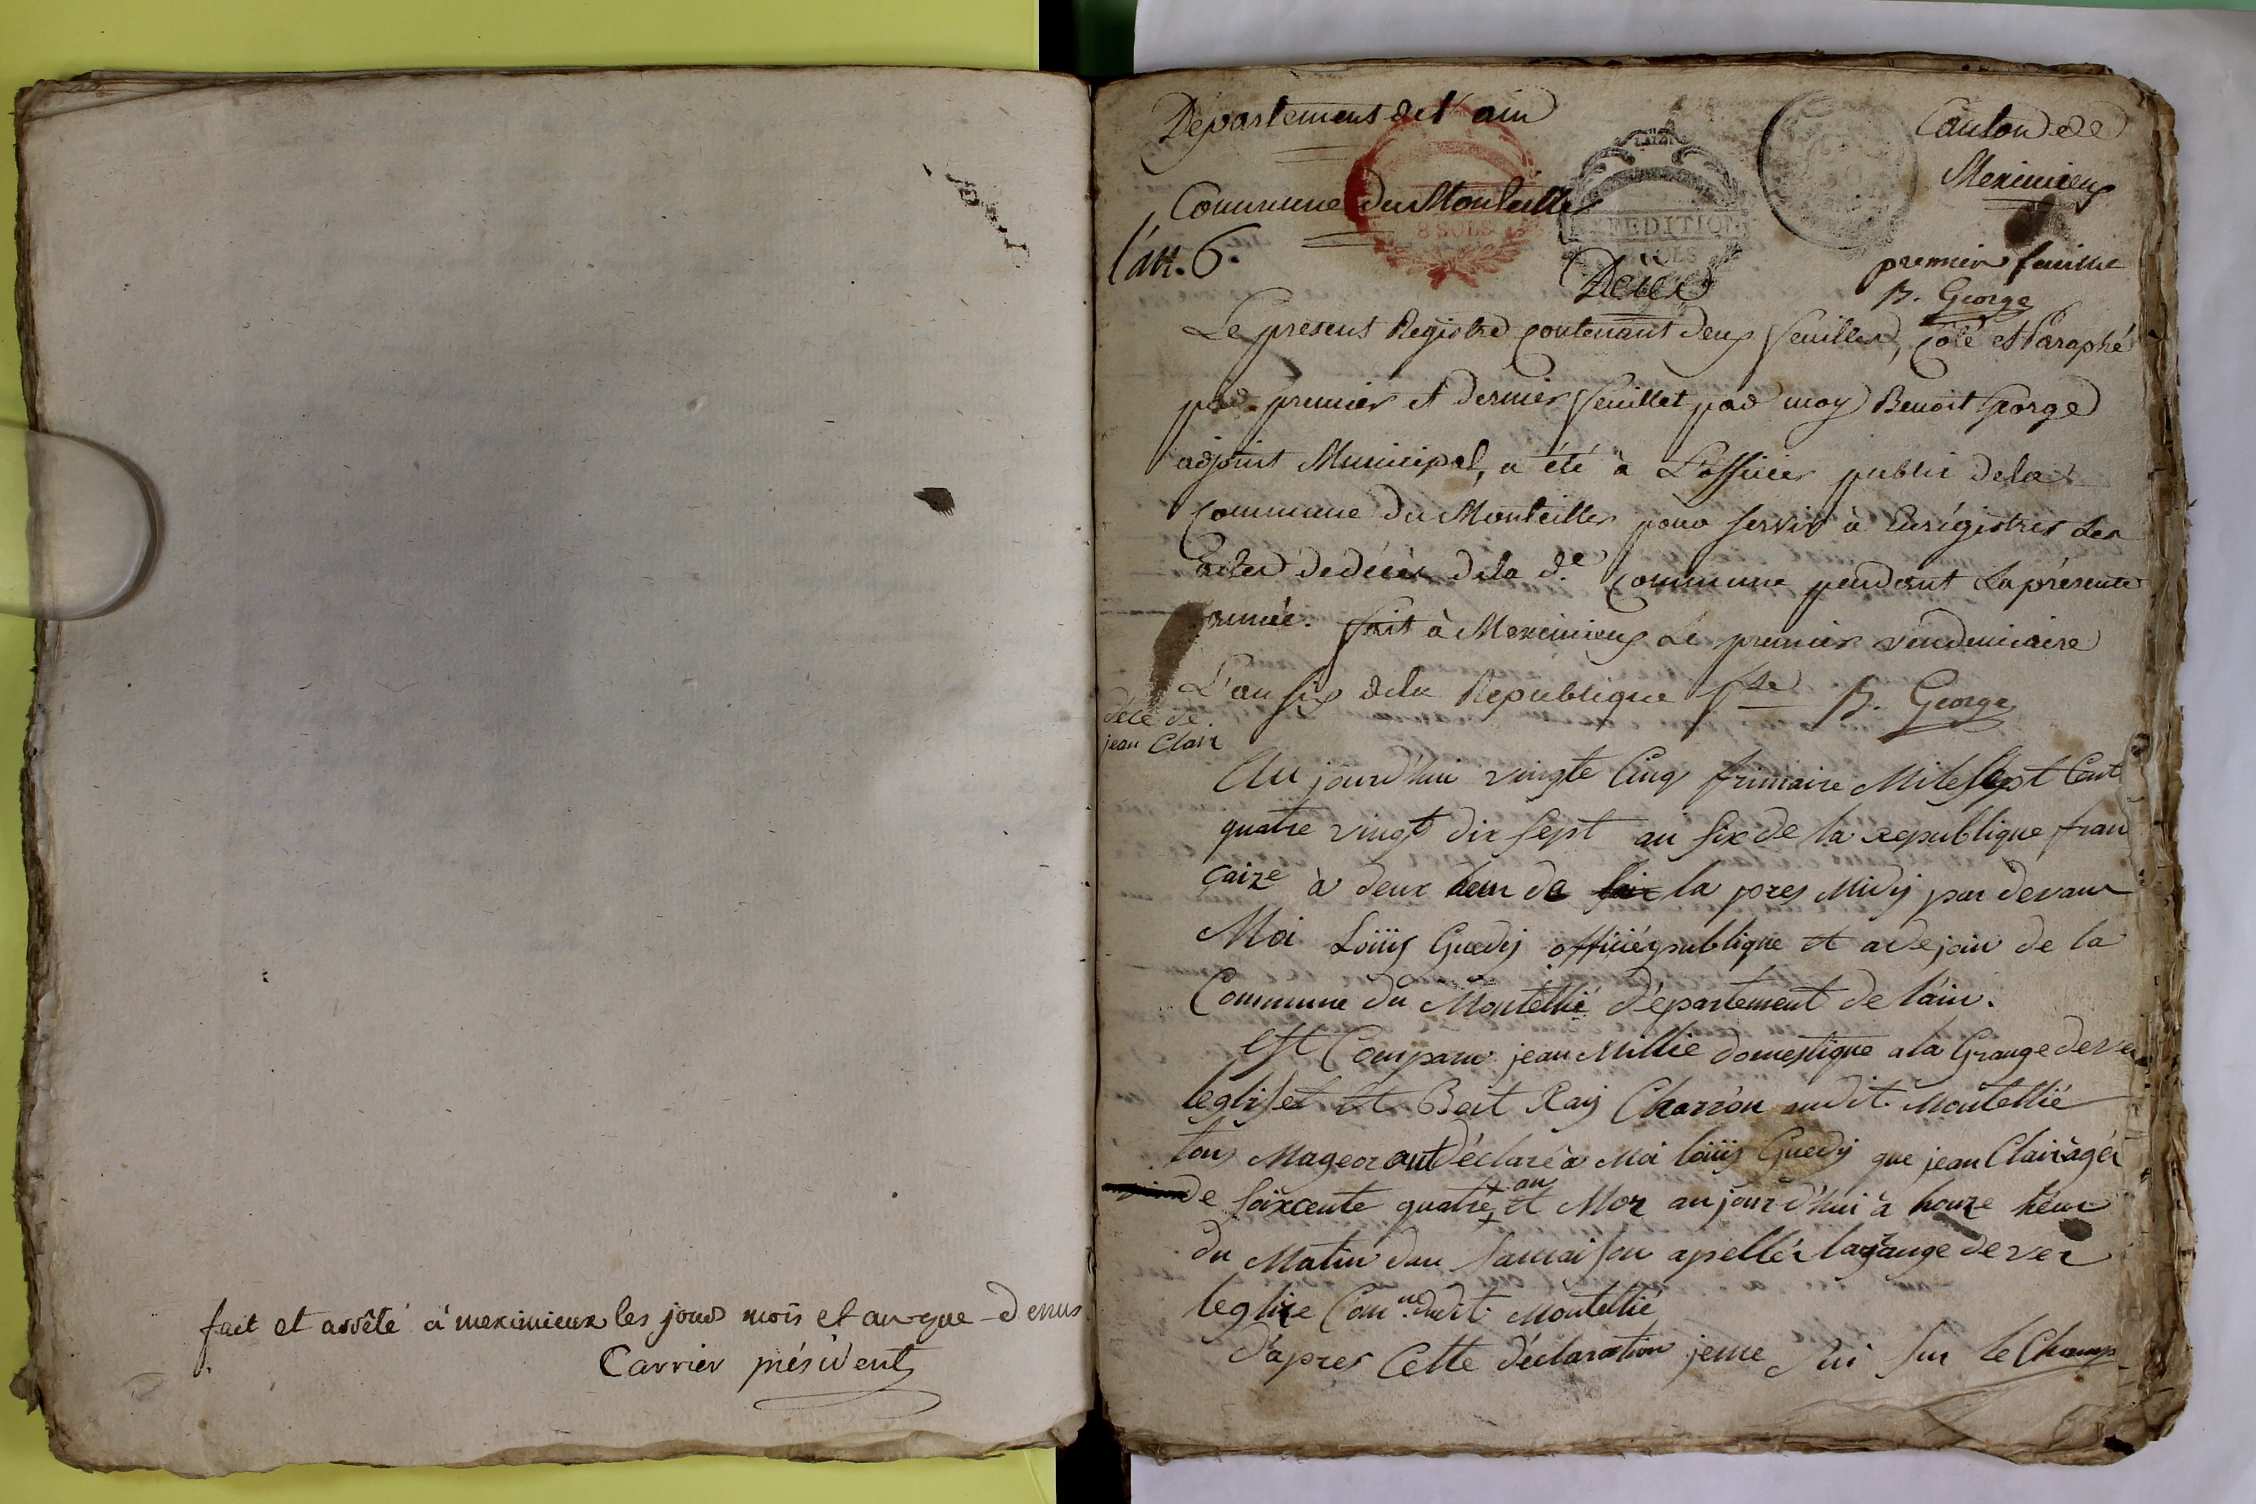 fait et arrêté à meximieux les jour mois et an que denus
Carrier président
Departement de l'ain
Canton de
Meximieux
Commune du Montellier
8 SOLS
EXPEDITION
SOLS
l'an. 6.
Deces
premier feuillet
B. George
Le present Registre contenant deux feuillets, Coté et Paraphé
par premier et dernier feuillet par moy Benoit George
adjoint Municipal, a été à L'officier public de la
Commune du Montellier pour servir à Enrégistrer les
actes de décès de la de. Commune pendant la présente
année. fait à Meximieux Le premier vendemiaire
L'an six de la Republique B. George
décé de
jean Clair
Au jourd'hui vingte Cinq frimaire Mile Sept Cent
quatre vingt dix sept an six de la republique fran
çaize à deux heur de la pres Midy par devant
Moi Loüis Guedy officié publique et adejoin de la
Commune du Montellié département de l'ain.
est Comparu jean Millie domestique a la Grange de ver
leglise et Beit Ray Charron audit Montellié
tous Mageor ont déclaré à Moi loüis Guedy que jean Clair agér
de soixcente quatre an et Mor au jour d'hui à honze heur
du Matin dan samaison apellér lagrange de ver
leglize Comne. dudit Montellié
d'apres Cette déclaration jeme sui sur le Champ